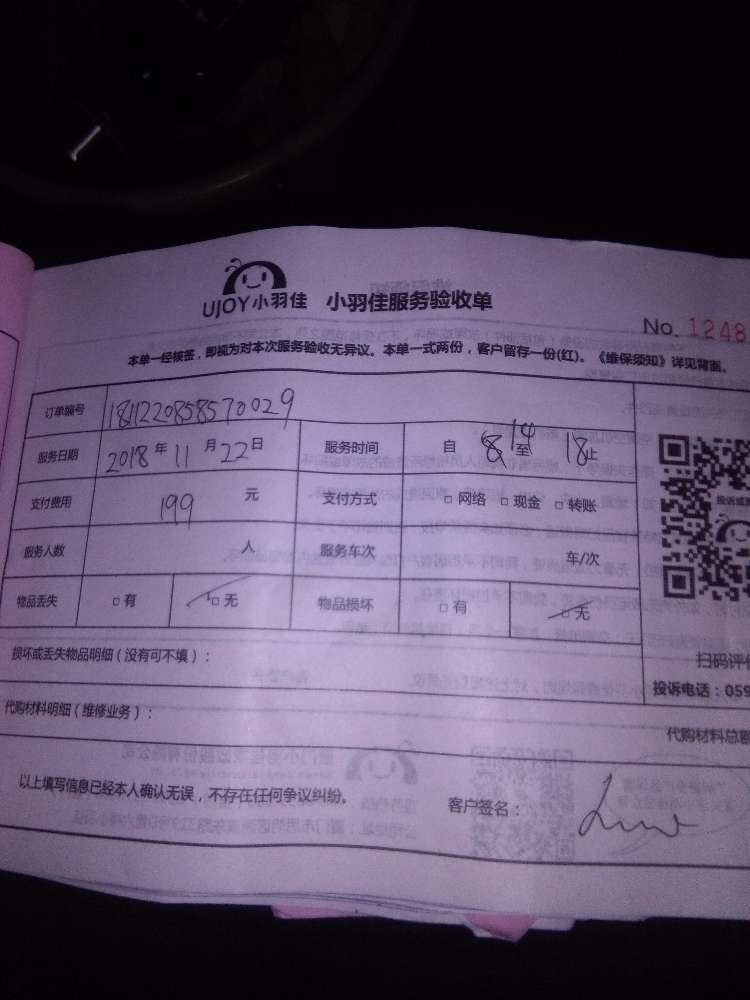 UJOY小羽佳 小羽佳服务验收单
No. 1248
本单一经核签，即视为对本次服务验收无异议。本单一式两份，客户留存一份(红)。《维保须知》详见背面。
订单编号 1811220858570029
服务日期 2018 年 11 月 22 日 服务时间 自 14 至 18 止
支付费用 199 元 支付方式 □ 网络 □ 现金 □ 转账
服务人数 人 服务车次 车/次
物品丢失 □ 有 □ 无 物品损坏 □ 有 □ 无
损坏或丢失物品明细（没有可不填）：
扫码评
投诉电话：059
代购材料明细（维修业务）：
代购材料总
以上填写信息已经本人确认无误，不存在任何争议纠纷。
客户签名：